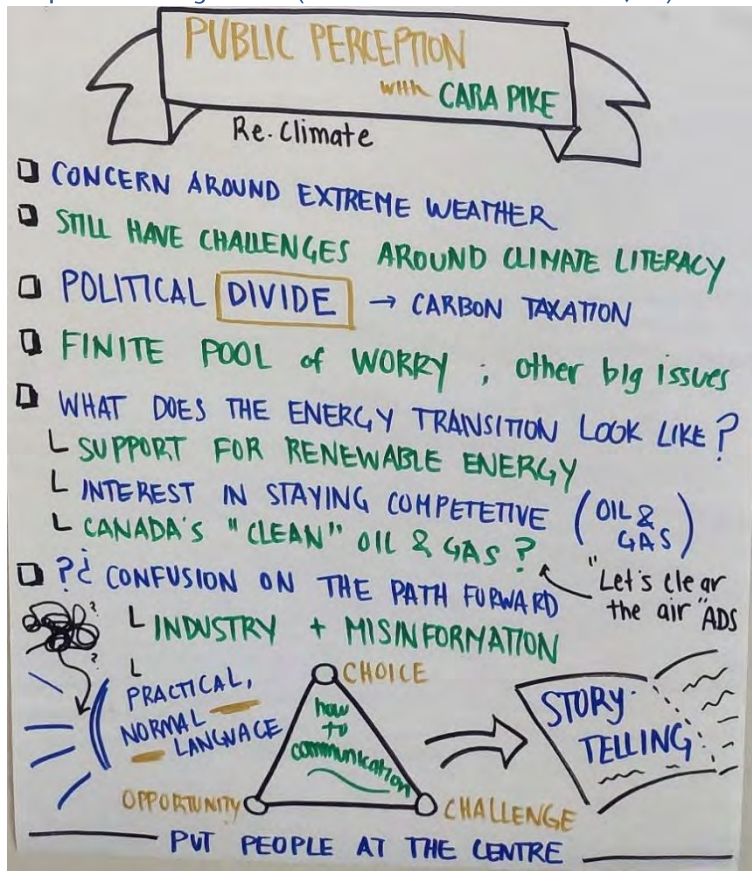 PUBLIC PERCEPTION
with CARA PIKE
Re. Climate
CONCERN AROUND EXTREME WEATHER
STILL HAVE CHALLENGES AROUND CLIMATE LITERACY
POLITICAL DIVIDE → CARBON TAXATION
FINITE POOL of WORRY ; other big issues
WHAT DOES THE ENERGY TRANSITION LOOK LIKE?
SUPPORT FOR RENEWABLE ENERGY
INTEREST IN STAYING COMPETETIVE (OIL &
GAS)
CANADA'S "CLEAN" OIL & GAS?
"Let's clear
the air" ADS
?¿ CONFUSION ON THE PATH FORWARD
INDUSTRY + MISINFORMATION
PRACTICAL,
NORMAL
LANGUAGE
CHOICE
how
to
communication
OPPORTUNITY
CHALLENGE
STORY-
TELLING
PUT PEOPLE AT THE CENTRE